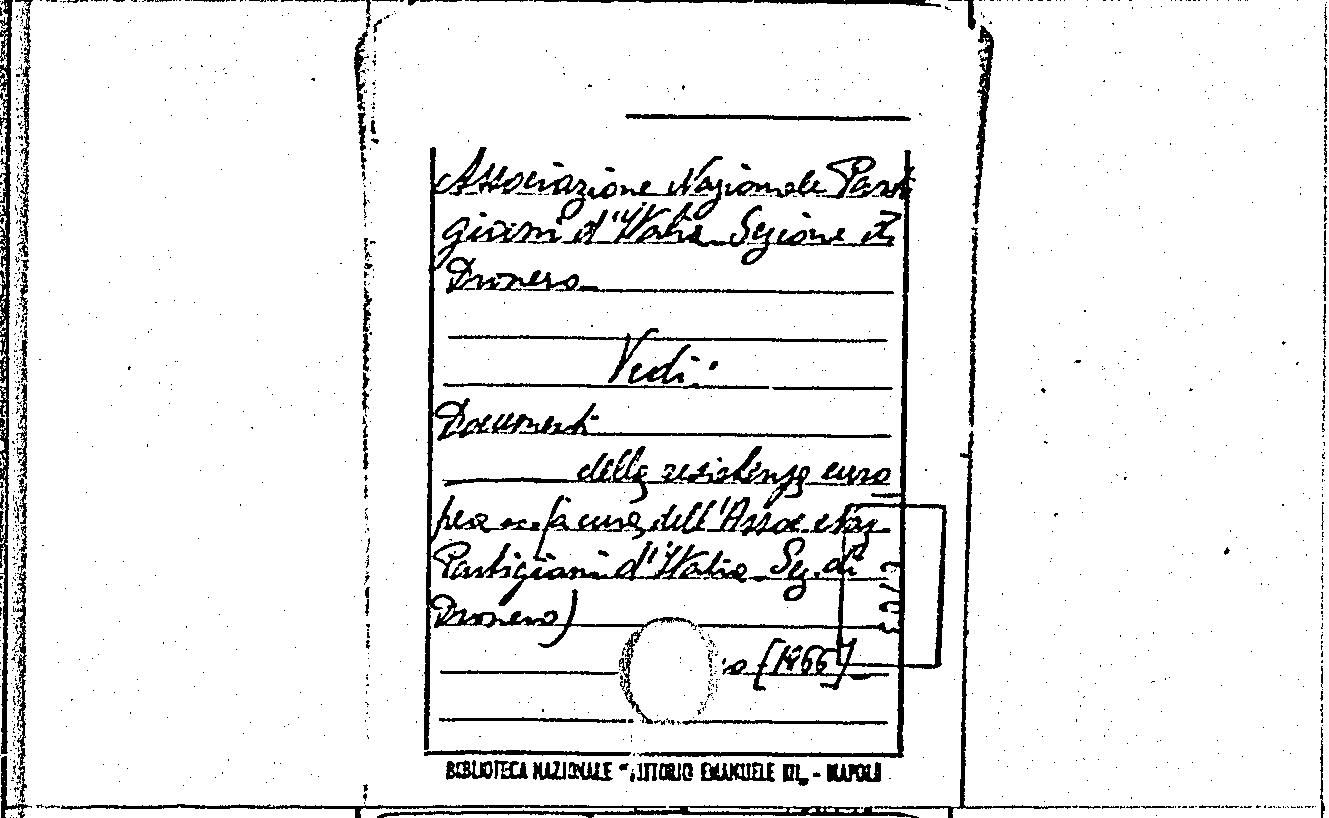 Associazione Nazionale Parti
giani d'Italia Sezione di
Dronero
Vedi:
Documenti
della resistenza euro
pea a cura dell'Assoc Naz
Partigiani d'Italia Sez. di
Dronero)
[1966]
BIBLIOTECA NAZIONALE "VITTORIO EMANUELE III" - NAPOLI